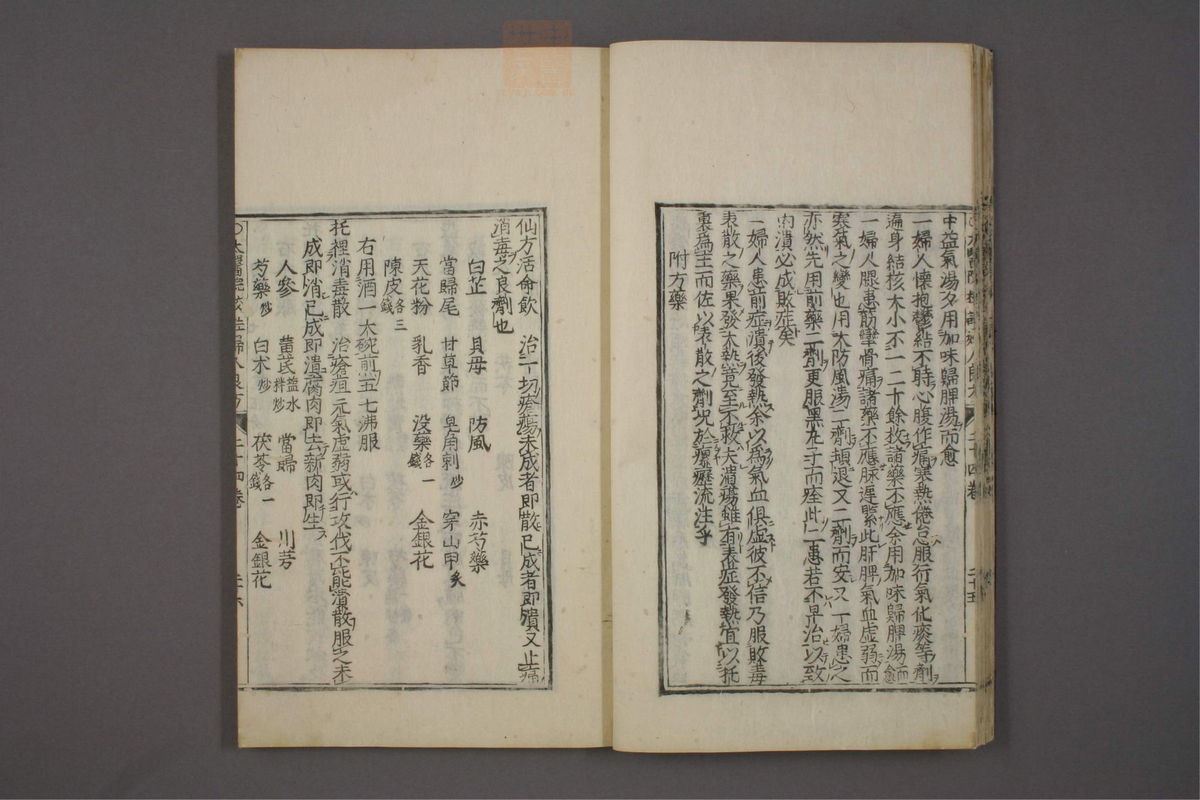 中益氣湯及用加味歸脾湯而愈
一婦人懷抱鬱結不時心腹作痛寒熱倦怠服行氣化痰等劑
遍身結核大小不一二十餘枚諸藥不應余用加味歸脾湯
一婦人腿患筋攣骨痛諸藥不應脉遲緊此肝脾氣血虛弱而
寒氣之變也用大防風湯二劑頓退又二劑而安又一婦患之
亦然先用前藥二劑更服黑丸子而痊此二患若不早治以致
肉潰必成敗症矣
一婦人患前症潰後發熱余以爲氣血俱虛彼不信乃服敗毒
表散之藥果發大熱竟至不救夫潰瘍雖有表症發熱宜以托
裏爲主而佐以表散之劑况於瘰癧流注乎
附方藥
二十四卷
二十五
仙方活命飲　治一切瘡瘍未成者即散已成者即潰又止痛
消毒之良劑也
白芷　貝母　防風　赤芍藥
當歸尾　甘草節　皂角刺炒　穿山甲炙
天花粉　乳香　没藥各一錢　金銀花
陳皮各三錢
右用酒一大碗煎五七沸服
托裡消毒散　治瘡疽元氣虛弱或行攻伐不能潰散服之未
成即消已成即潰腐肉即去新肉即生
人參　黄芪鹽水拌炒　當歸　川芎
芍藥炒　白朮炒　茯苓各一錢　金銀花
太醫院校註婦人良方
二十四卷
二十六